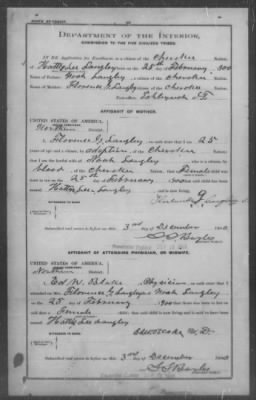 DEPARTMENT OF THE INTERIOR,
COMMISSION TO THE FIVE CIVILIZED TRIBES.
IN RE Application for Enrollment, as a citizen of the Cherokee Nation,
of Hattie Lee Langley, born on the 25th day of February, 1900
Name of Father: Noah Langley, a citizen of the Cherokee Nation.
Name of Mother: Florence G Langley, a citizen of the Cherokee Nation.
AFFIDAVIT OF MOTHER.
UNITED STATES OF AMERICA,
Northern District.
I, Florence G. Langley, on oath state that I am 25
years of age and a citizen, by adoption, of the Cherokee Nation;
that I am the lawful wife of Noah Langley, who is a citizen, by
blood, of the Cherokee Nation; that a Female child was
born to me on the 25th day of February, 1900; that said child has been
named Hattie Lee Langley, and is now living.
Subscribed and sworn to before me this 3rd day of December, 1900.
AFFIDAVIT OF ATTENDING PHYSICIAN, OR MIDWIFE.
UNITED STATES OF AMERICA,
Northern District.
I, Ed. N. Blake, a Physician, on oath state that I
attended on Mrs. Florence G Langley, wife of Noah Langley,
on the 25 day of February, 1900; that there was born to her on said
date a Female child; that said child is now living and is said to have been
named Hattie Lee Langley
M.D.
Subscribed and sworn to before me this 3rd day of December, 1900